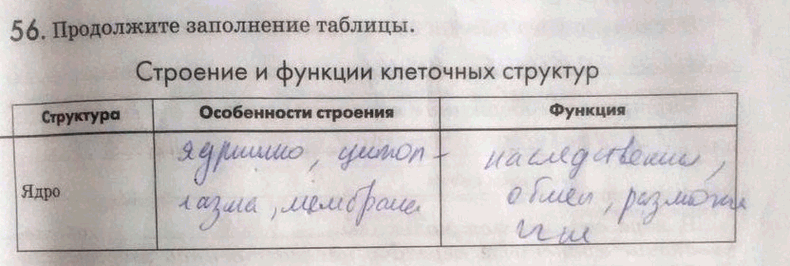 56. Продолжите заполнение таблицы.
Строение и функции клеточных структур
Структура Особенности строения Функция
Ядро
ядришко, цитоп-
лазма, мембрана
наследственная,
обмен, разможе
ние